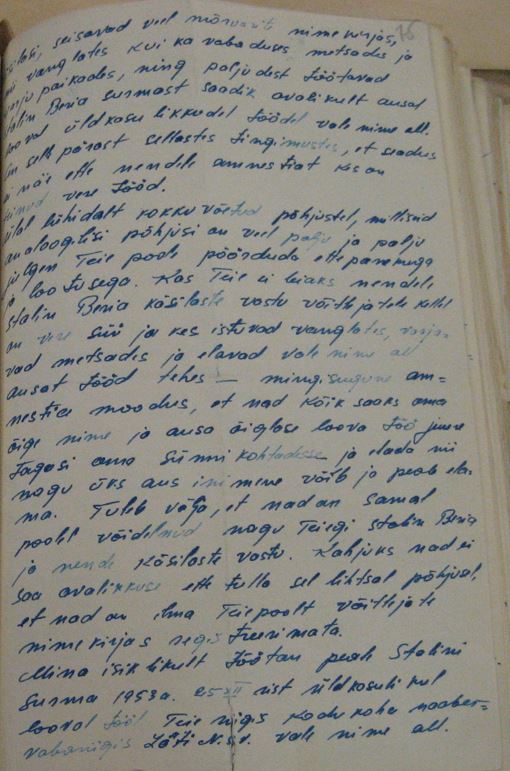 76
käsilasi, seisavad veel mõrvarite nimekirjas,
nii vanglates kui ka vabaduses metsades ja
varju paikades, ning paljudest töötavad
stalin Beria surmast saadik avalikult ausal
looval üldkasulikkudel töödel vale nime all.
selle pärast sellastes tingimustes, et seadus
ei näe ette nendele amnestiat kes on
teinud vere tööd.
Ülal lühidalt kokku võetud põhjustel, milliseid
analoogilisi põhjusi on veel palju ja palju
julgen Teie poole pöörduda ettepanekuga
ja lootusega. Kas Teie ei leiaks nendele
stalin Beria käsilaste vastu võitlejatele kellel
on vere süü ja kes istuvad vanglates, varja-
vad metsades ja elavad vale nime all
ausat tööd tehes — mingisugune am-
nestia moodus, et nad kõik saaks oma
õige nime ja ausa õiglase loova töö juure
tagasi oma sünni kohtadesse ja elada nii
nagu üks aus inimene võib ja peab ela-
ma. Tuleb välja, et nad on samal
poolel võidelnud nagu Teiegi stalin Beria
ja nende käsilaste vastu. Kahjuks nad ei
saa avalikkuse ette tulla sel lihtsal põhjusel,
et nad on ilma Teiepoolt võitlejate
nimekirjas registreerimata.
Mina isiklikult töötan peale Stalini
surma 1953 a. 25 XII üldkasulikul
looval tööl Teie riigis kodu koha naaber-
vabariigis Läti N.S.V. vale nime all.